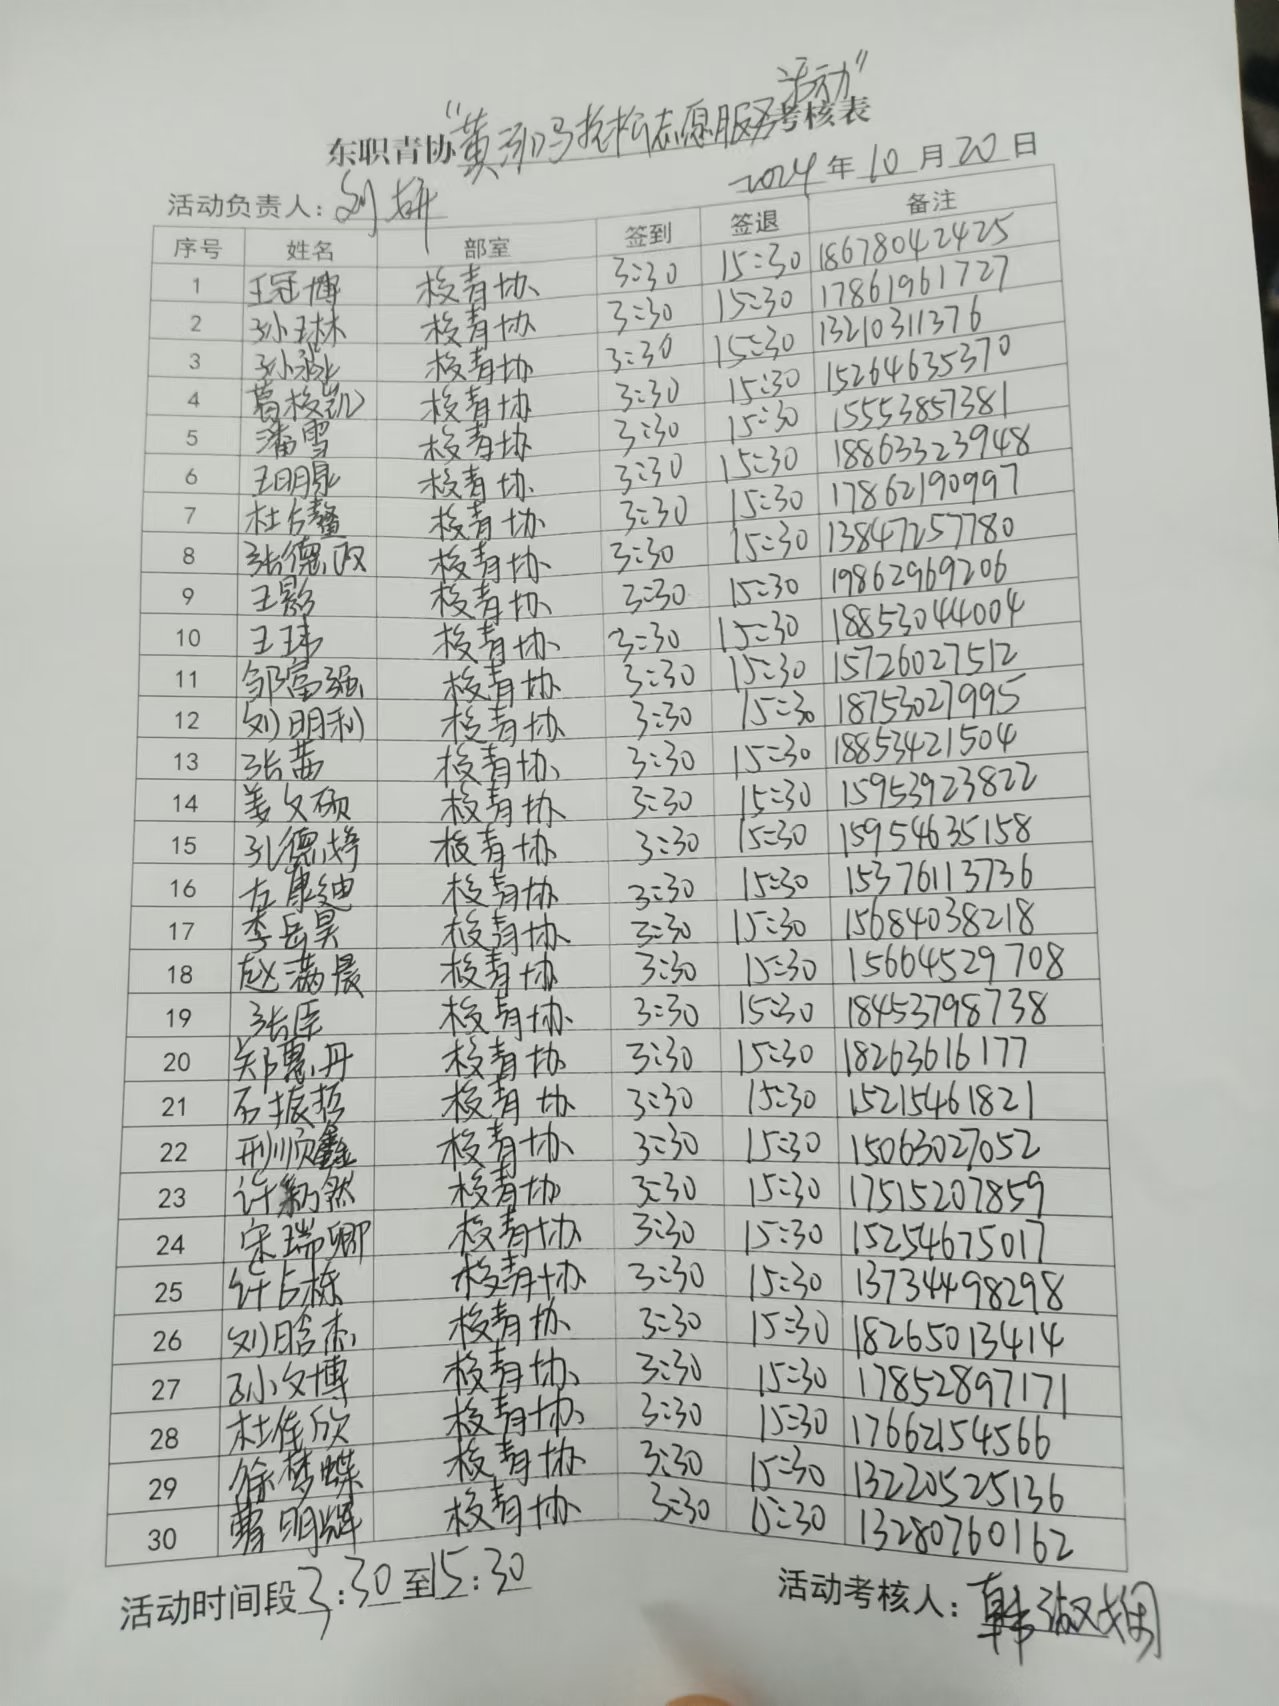 东职青协"黄河口马拉松志愿服务活动"考核表
活动负责人：刘妍 2024年10月20日
序号 姓名 部室 签到 签退 备注
1 王冠博 校青协 3:30 15:30 18678042425
2 孙玉林 校青协 3:30 15:30 17861961727
3 孙淼 校青协 3:30 15:30 13210311376
4 葛校凯 校青协 3:30 15:30 15264635370
5 潘雪 校青协 3:30 15:30 15553857381
6 王明泉 校青协 3:30 15:30 18863323948
7 杜占鳌 校青协 3:30 15:30 17862190997
8 张德政 校青协 3:30 15:30 13847257780
9 王影 校青协 3:30 15:30 19862969206
10 王玮 校青协 3:30 15:30 18853044004
11 邹富强 校青协 3:30 15:30 15726027512
12 刘明利 校青协 3:30 15:30 18753027995
13 张茜 校青协 3:30 15:30 18853421504
14 姜文硕 校青协 3:30 15:30 15953923822
15 孔德婷 校青协 3:30 15:30 15954635158
16 左康迪 校青协 3:30 15:30 15376113736
17 李岳昊 校青协 3:30 15:30 15684038218
18 赵满晨 校青协 3:30 15:30 15664529708
19 张臣 校青协 3:30 15:30 18453798738
20 郑惠丹 校青协 3:30 15:30 18263616177
21 石振哲 校青协 3:30 15:30 15215461821
22 邢顺鑫 校青协 3:30 15:30 15063027052
23 许勌然 校青协 3:30 15:30 17515207859
24 宋瑞卿 校青协 3:30 15:30 15254675017
25 许占栋 校青协 3:30 15:30 13734498298
26 刘晗杰 校青协 3:30 15:30 18265013414
27 孙文博 校青协 3:30 15:30 17852897171
28 杜佳欣 校青协 3:30 15:30 17662154566
29 徐梦蝶 校青协 3:30 15:30 13220525136
30 曹明辉 校青协 3:30 15:30 13280760162
活动时间段3:30至15:30 活动考核人：韩淑娴